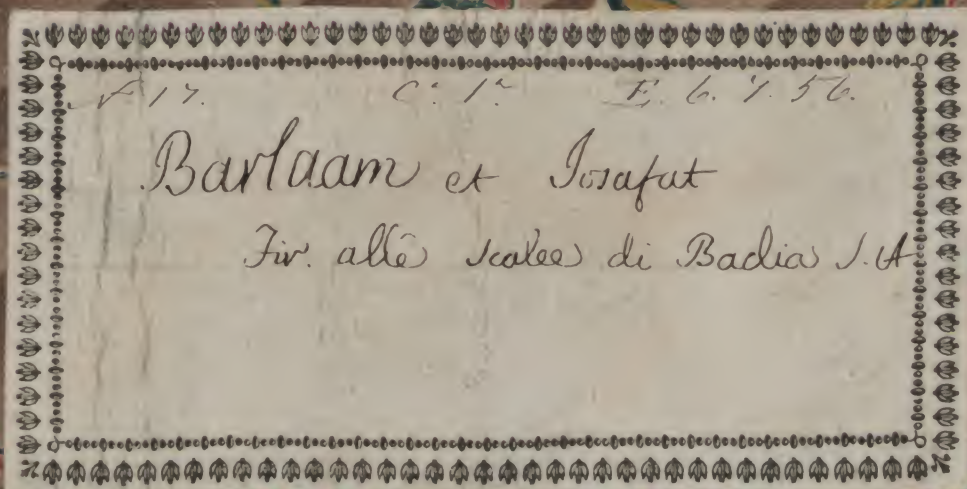 N. 17. C.ᵃ 1.ᵃ E. 6. 7. 56.
Barlaam et Josafat
Fir. alle scalee di Badia S. A